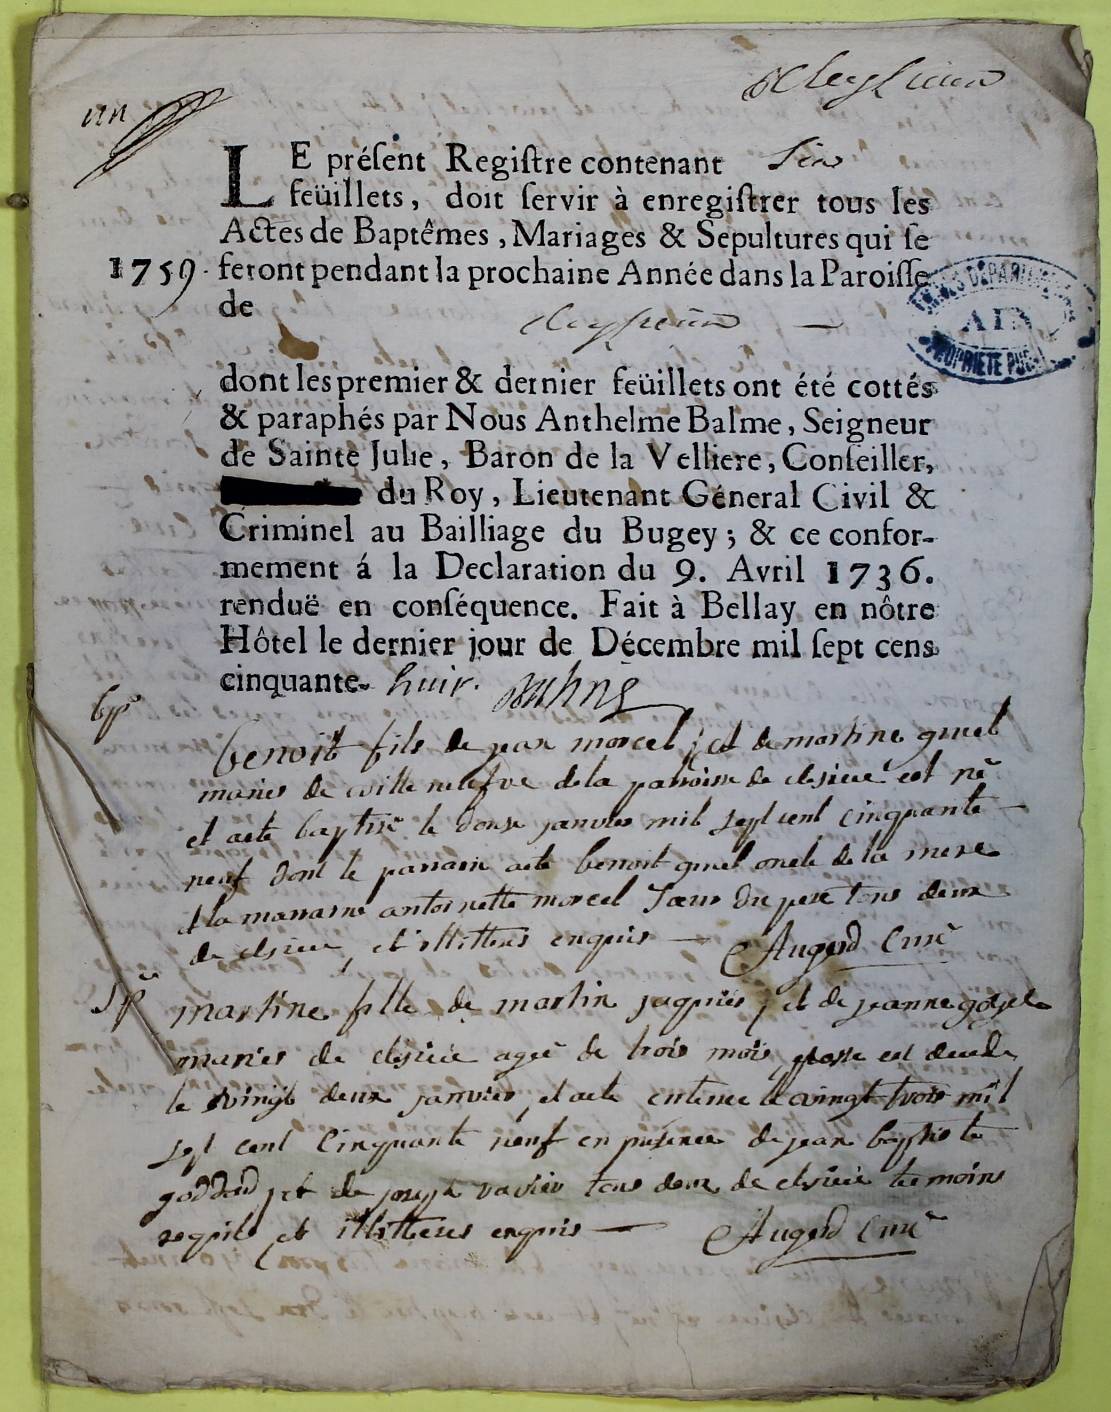 un
Cleysieux
LE préſent Regiſtre contenant Six
feüillets, doit ſervir à enregiſtrer tous les
Actes de Baptêmes, Mariages & Sepultures qui ſe
1759. feront pendant la prochaine Année dans la Paroiſſe
de
Cleysieux
AIN
PROPRIETE PUB
dont les premier & dernier feüillets ont été cottés
& paraphés par Nous Anthelme Balme, Seigneur
de Sainte Julie, Baron de la Velliere, Conſeiller,
du Roy, Lieutenant Géneral Civil &
Criminel au Bailliage du Bugey; & ce confor-
mement á la Declaration du 9. Avril 1736.
renduë en conſéquence. Fait à Bellay en nôtre
Hôtel le dernier jour de Décembre mil ſept cens
cinquante- huit.
bp
benoit fils de jean morcel, et de martine
maries de ville nefve de la parroisse de clesieu est né
et aeté baptisé le douse janvier mil sept cent cinquante
neuf dont le parrain aeté benoit oncle de la mere
et la marraine antoinette morcel sœur du pere tous deux
de clesieu, et illitterés enquis Augerd Curé
Sp
martine fille de martin jaquier, et de jeanne
maries de clesieu agée de trois mois est decedée
le vingt deux janvier, et aeté enterrée le vingt trois mil
sept cent cinquante neuf en presence de jean baptiste
goddard, et de joseph ravier tous deux de clesieu temoins
requis, et illitterés enquis Augerd Curé